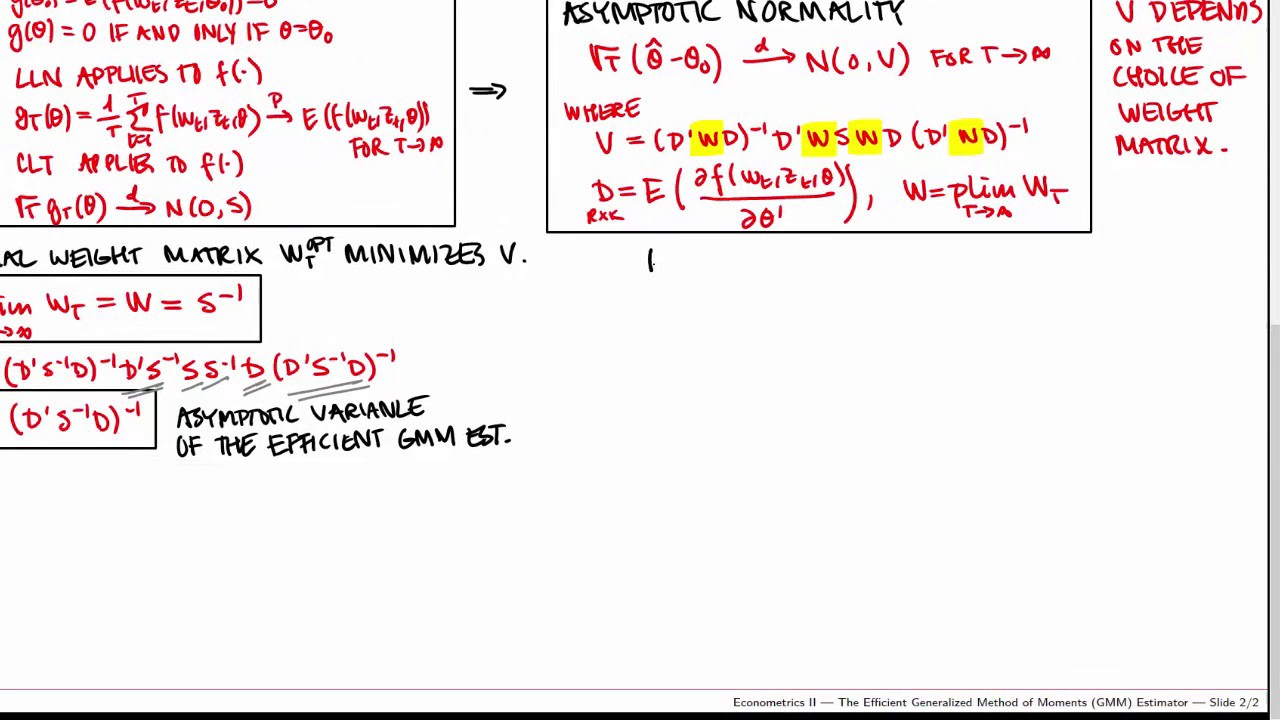 g(θ) = 0 IF AND ONLY IF θ=θ₀
LLN APPLIES TO f(·)
g_T(θ) = 1/T Σ_{t=1}^T f(w_t, z_t, θ) →^P E(f(w_t, z_t, θ))
FOR T→∞
CLT APPLIES TO f(·)
√T g_T(θ) →^d N(0, S)
⇒
ASYMPTOTIC NORMALITY
√T (θ̂ - θ₀) →^d N(0, V) FOR T→∞
WHERE
V = (D'WD)⁻¹ D'WSWD (D'WD)⁻¹
D = E(∂f(w_t, z_t, θ)/∂θ'), W = plim W_T
R×K T→∞
V DEPENDS
ON THE
CHOICE OF
WEIGHT
MATRIX.
AL WEIGHT MATRIX W_T^OPT MINIMIZES V.
im W_T = W = S⁻¹
→∞
(D'S⁻¹D)⁻¹ D'S⁻¹ S S⁻¹ D (D'S⁻¹D)⁻¹
(D'S⁻¹D)⁻¹
ASYMPTOTIC VARIANCE
OF THE EFFICIENT GMM EST.
Econometrics II — The Efficient Generalized Method of Moments (GMM) Estimator — Slide 2/2